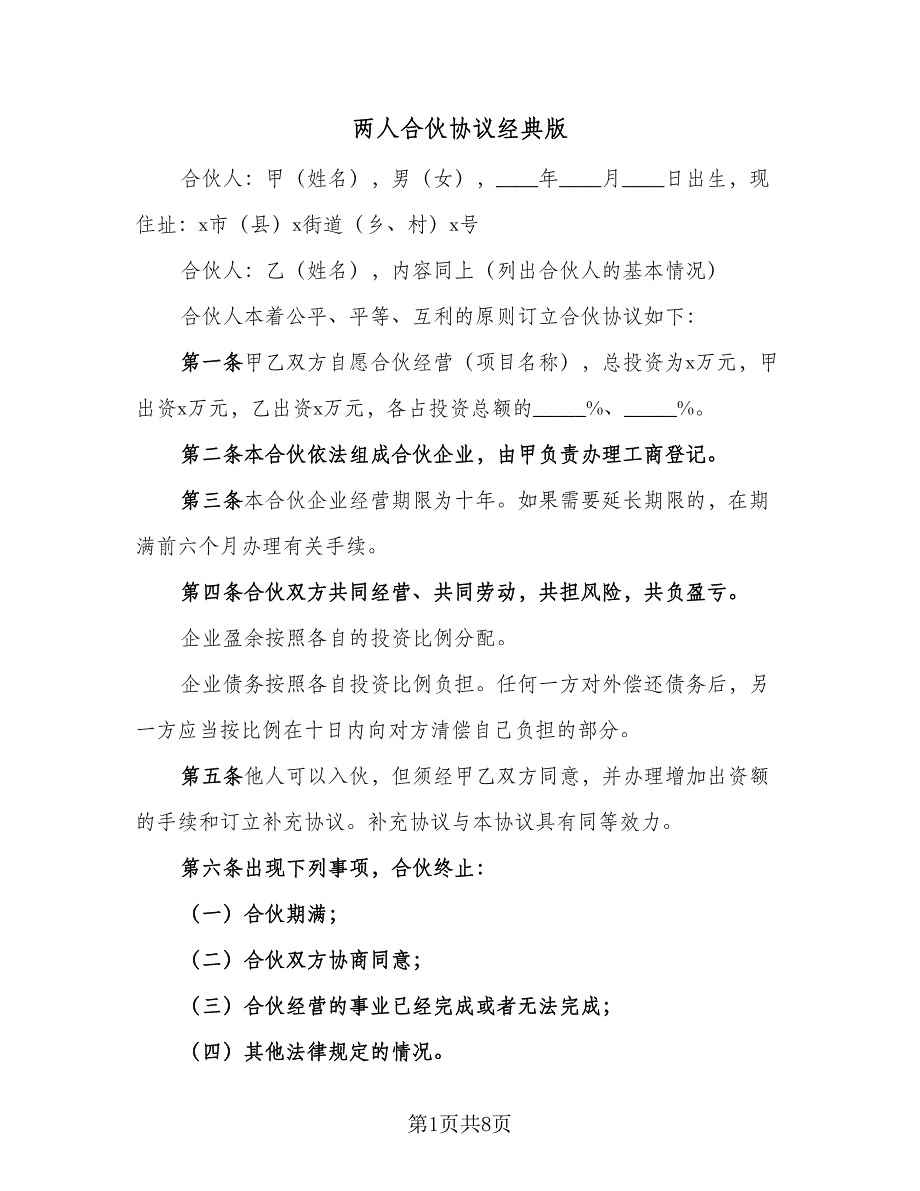 两人合伙协议经典版
合伙人：甲（姓名），男（女），____年____月____日出生，现
住址：x市（县）x街道（乡、村）x号
合伙人：乙（姓名），内容同上（列出合伙人的基本情况）
合伙人本着公平、平等、互利的原则订立合伙协议如下：
第一条甲乙双方自愿合伙经营（项目名称），总投资为x万元，甲
出资x万元，乙出资x万元，各占投资总额的_____%、_____%。
第二条本合伙依法组成合伙企业，由甲负责办理工商登记。
第三条本合伙企业经营期限为十年。如果需要延长期限的，在期
满前六个月办理有关手续。
第四条合伙双方共同经营、共同劳动，共担风险，共负盈亏。
企业盈余按照各自的投资比例分配。
企业债务按照各自投资比例负担。任何一方对外偿还债务后，另
一方应当按比例在十日内向对方清偿自己负担的部分。
第五条他人可以入伙，但须经甲乙双方同意，并办理增加出资额
的手续和订立补充协议。补充协议与本协议具有同等效力。
第六条出现下列事项，合伙终止：
（一）合伙期满；
（二）合伙双方协商同意；
（三）合伙经营的事业已经完成或者无法完成；
（四）其他法律规定的情况。
第1页共8页